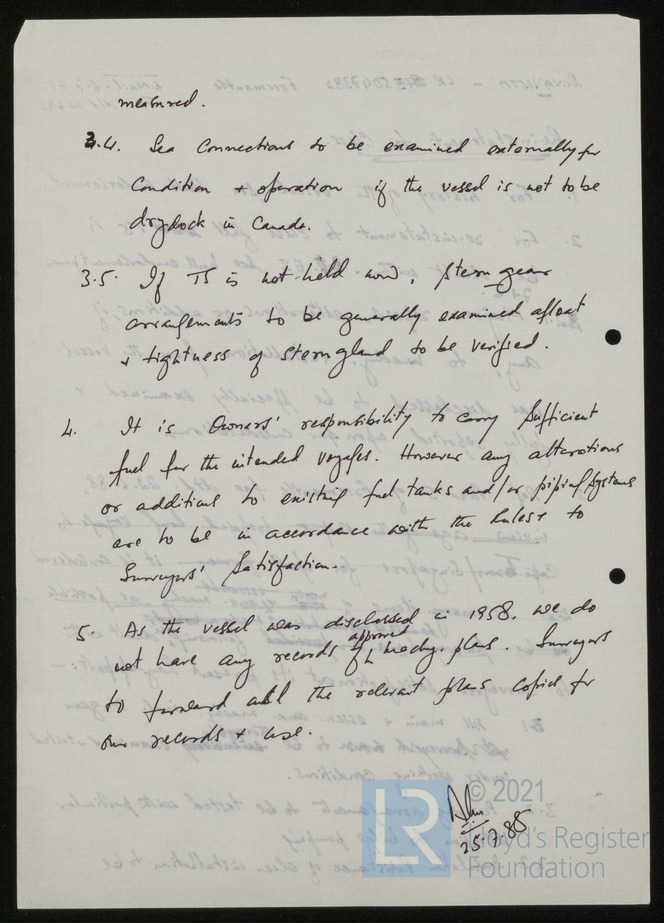 measured.
3.4. Sea Connections to be examined externally for
Condition + operation if the vessel is not to be
drydock in Canada.
3.5. If TS is not held now, stern gear
arrangements to be generally examined afloat
+ tightness of sterngland to be verified.
4. It is Owners' responsibility to carry sufficient
fuel for the intended voyages. However any alterations
or additions to existing fuel tanks and/or piping systems
are to be in accordance with the Rules & to
Surveyors' Satisfaction.
5. As the vessel was disclassed in 1958, we do
not have any records of approved mach. plans. Surveyors
to forward all the relevant plans copied for
our records + use.
25.7.85
LR
© 2021
Lloyd's Register
Foundation